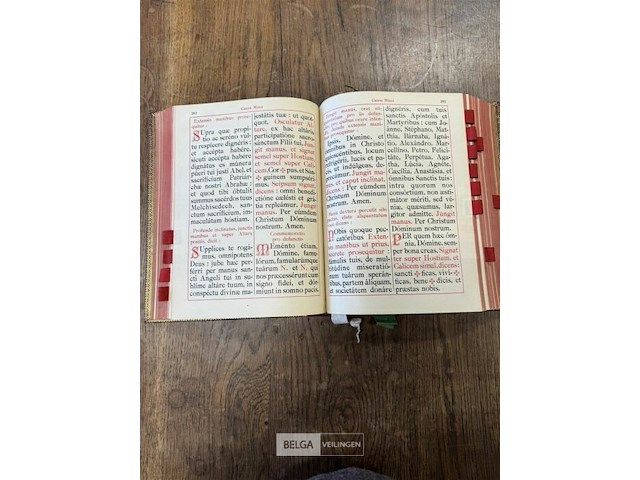 Canon Missæ
Extensis manibus prose-
quitur :
Supra quæ propí-
tio ac seréno vul-
tu respícere dignéris :
et accépta habére,
sícuti accépta habére
dignátus es múnera
púeri tui justi Abel, et
sacrifícium Patriár-
chæ nostri Abrahæ :
et quod tibi óbtulit
summus sacérdos tuus
Melchísedech, san-
ctum sacrifícium, im-
maculátam hóstiam.
Profunde inclinatus, junctis
manibus et super Altare
positis, dicit :
Súpplices te rogá-
mus, omnípotens
Deus : jube hæc per-
férri per manus san-
cti Angeli tui in su-
blíme altáre tuum, in
conspéctu divínæ ma-
jestátis tuæ : ut quot-
quot, Osculatur Al-
tare, ex hac altáris
participatióne sacro-
sánctum Fílii tui, Jun-
git manus, et signat
semel super Hostiam
et semel super Cali-
cem, Cor✠pus, et Sán-
✠guinem sumpséri-
mus, Seipsum signat,
dicens : omni benedi-
ctióne cælésti et grá-
tia repleámur. Jungit
manus. Per eúmdem
Christum Dóminum
nostrum. Amen.
Commemoratio
pro defunctis
Meménto étiam,
Dómine, famu-
lórum, famularúmque
tuárum N. et N. qui
nos præcessérunt cum
signo fídei, et dór-
miunt in somno pacis.
Canon Missæ
Ipsis, Dómine, et
ómnibus in Christo
quiescéntibus, locum
refrigérii, lucis et pa-
cis, ut indúlgeas, de-
precámur. Jungit ma-
nus, et caput inclinat,
dicens : Per eúmdem
Christum Dóminum
nostrum. Amen.
Nobis quoque pec-
catóribus Exten-
sis manibus ut prius,
secrete prosequitur :
fámulis tuis, de mul-
titúdine miseratió-
num tuárum sperán-
tibus, partem áliquam,
et societátem donáre
dignéris, cum tuis
sanctis Apóstolis et
Martýribus : cum Jo-
ánne, Stéphano, Mat-
thía, Bárnaba, Ignátio,
Alexándro, Mar-
cellíno, Petro, Felici-
táte, Perpétua, Aga-
tha, Lúcia, Agnéte,
Cæcília, Anastásia, et
ómnibus Sanctis tuis :
intra quorum nos
consórtium, non æsti-
mátor mériti, sed vé-
niæ, quǽsumus, lar-
gítor admítte. Jungit
manus. Per Christum
Dóminum nostrum.
Per quem hæc óm-
nia, Dómine, sem-
per bona creas, Signat
ter super Hostiam, et
Calicem simul, dicens :
sanctí ✠ ficas, viví-✠
ficas, bene ✠ dícis, et
præstas nobis.
BELGA VEILINGEN